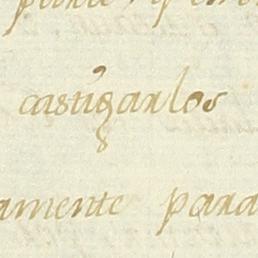 castigarlos
amente para